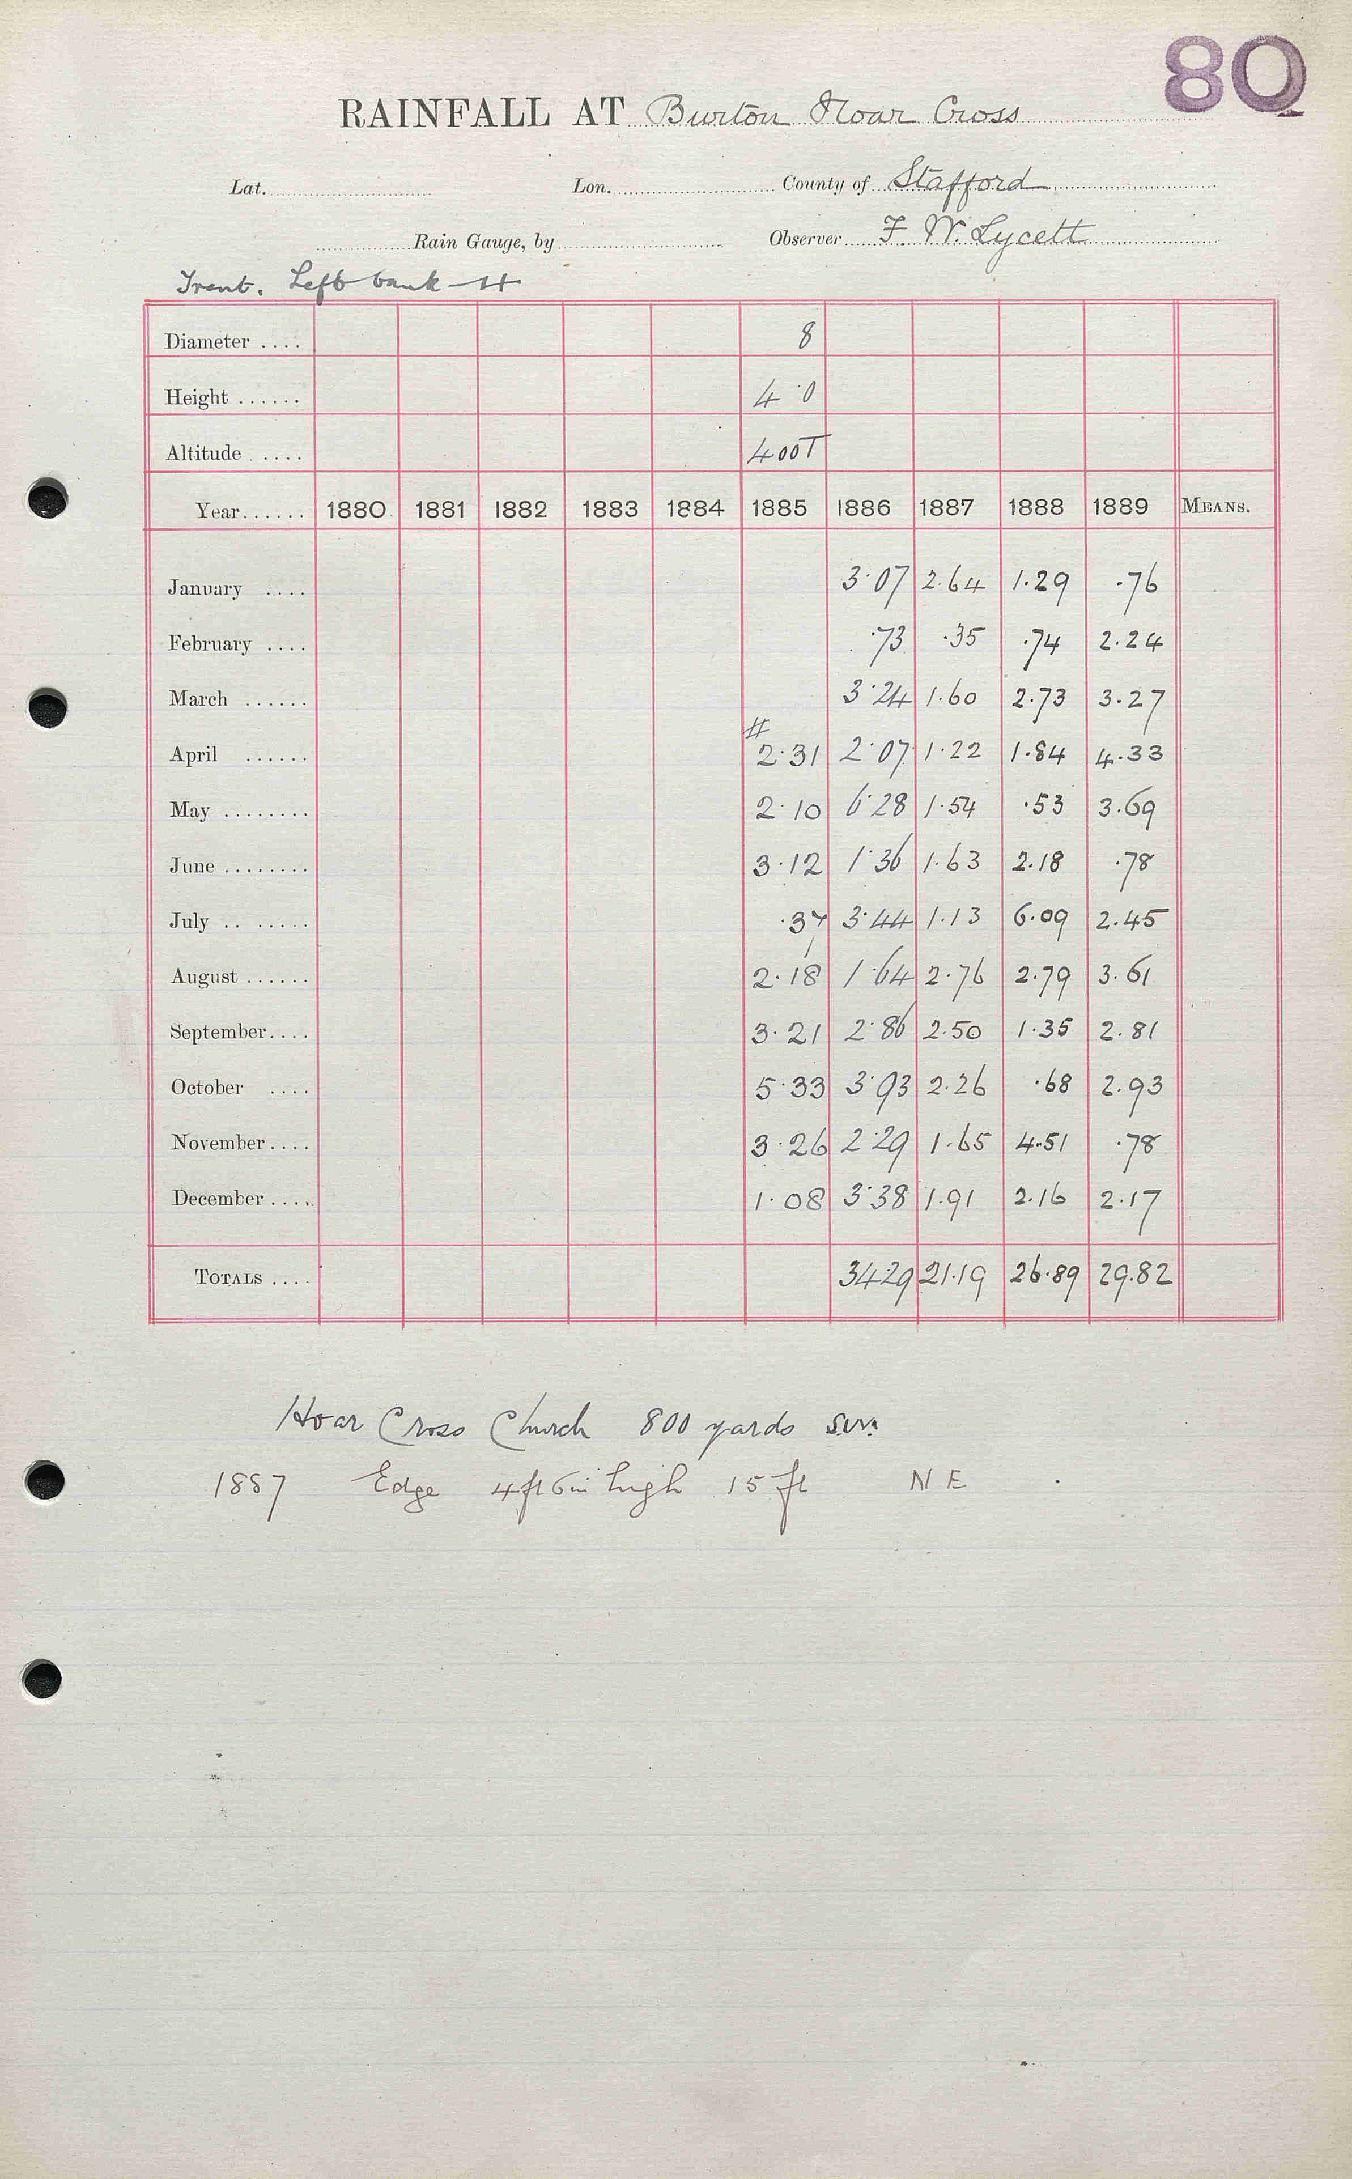 80
RAINFALL AT Burton Hoar Cross
Lat. Lon. County of Stafford
Rain Gauge, by Observer F. W. Lycett
Trent. Left bank
Diameter .... 8
Height ...... 4·0
Altitude ..... 400T
Year...... 1880 1881 1882 1883 1884 1885 1886 1887 1888 1889 MEANS.
January .... 3·07 2·64 1·29 ·76
February .... ·73 ·35 ·74 2·24
March ...... 3·24 1·60 2·73 3·27
#
April ...... 2·31 2·07 1·22 1·84 4·33
May ........ 2·10 6·28 1·54 ·53 3·69
June ........ 3·12 1·36 1·63 2·18 ·78
July .. ...... ·37 3·44 1·13 6·09 2·45
August ...... 2·18 1·64 2·76 2·79 3·61
September.... 3·21 2·86 2·50 1·35 2·81
October .... 5·33 3·93 2·26 ·68 2·93
November.... 3·26 2·29 1·65 4·51 ·78
December .... 1·08 3·38 1·91 2·16 2·17
TOTALS .... 34·29 21·19 26·89 29·82
Hoar Cross Church 800 yards S.W.
1887 Edge 4ft 6in high 15 ft N E